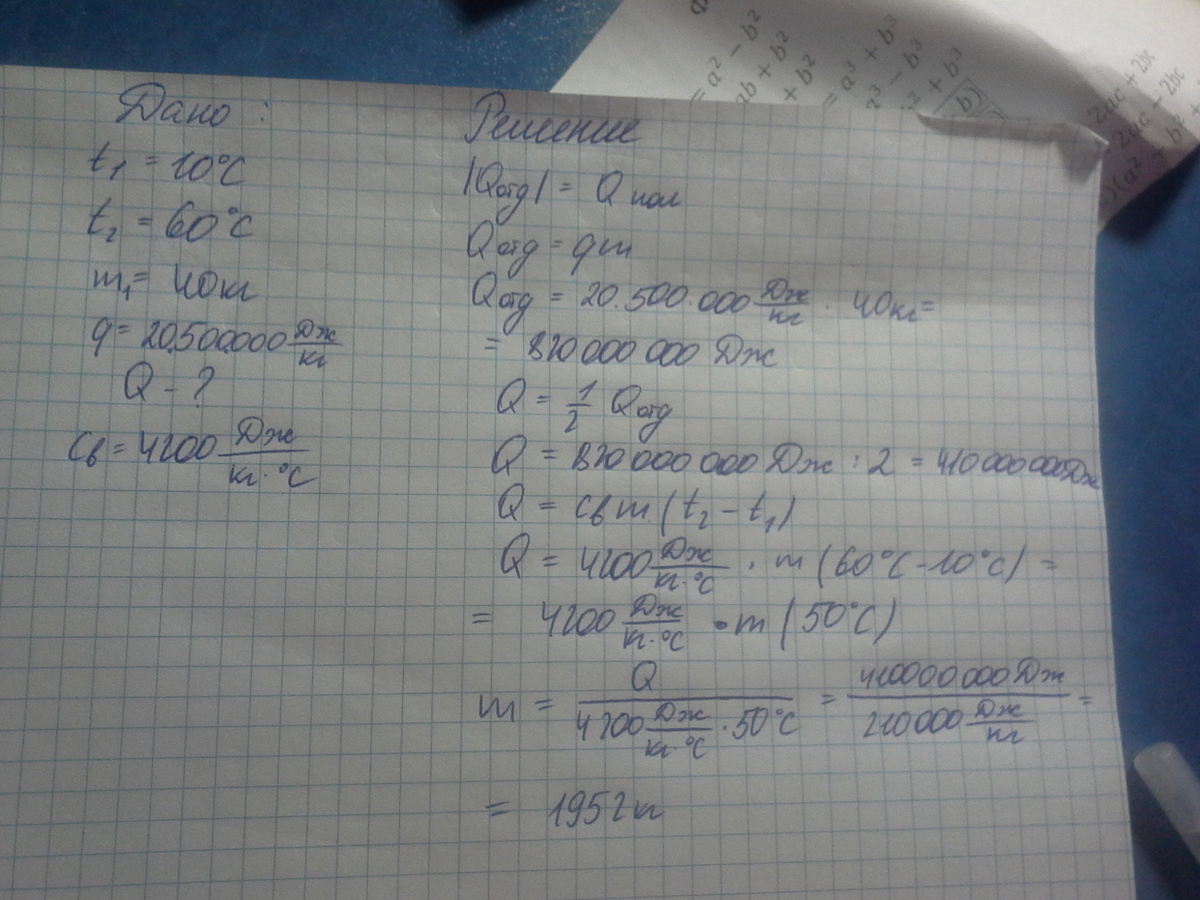 Дано :
t₁ = 10°C
t₂ = 60°C
m₁ = 40кг
q = 20.500.000 Дж/кг
Q - ?
Cв = 4200 Дж/кг·°C
Решение
|Qотд| = Q пол
Qотд = qm
Qотд = 20.500.000 Дж/кг · 40кг =
= 820 000 000 Дж
Q = 1/2 Qотд
Q = 820 000 000 Дж : 2 = 410 000 000 Дж
Q = Cв m (t₂ - t₁)
Q = 4200 Дж/кг·°C · m (60°C - 10°C) =
= 4200 Дж/кг·°C · m (50°C)
m = Q / 4200 Дж/кг·°C · 50°C = 410000000 Дж / 210000 Дж/кг =
= 1952 кг
= a² - b²
ab + b²
+ b²
= a³ + b³
a³ - b³
+ b³
b)
2ac + 2bc
2ac - 2bc